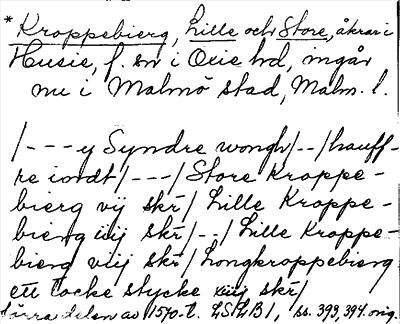 * Kroppebierg, Lille och Store, åkrar i
Husie, f. sn i Oxie hd, ingår
nu i Malmö stad, Malm. l.
/---y Syndre wongh/--/hauff-
re iordt/---/Store Kroppe-
bierg vij skr/Lille Kroppe-
bierg iiij skr/--/Lille Kroppe-
bierg viij skr/Longkroppebierg
ett tacke stycke xiiij skr/
förra delen av 1570-t. LSLB1, ss. 393, 394. orig.